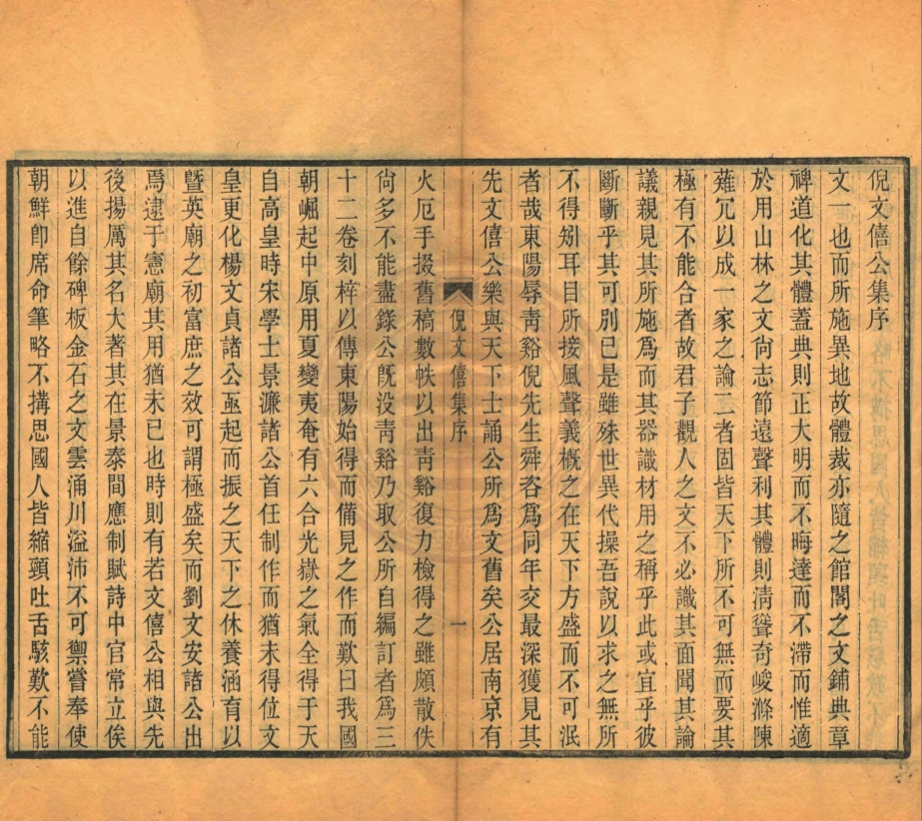 倪文僖公集序
文一也而所施異地故體裁亦隨之館閣之文鋪典章
裨道化其體蓋典則正大明而不晦達而不滯而惟適
於用山林之文尙志節遠聲利其體則淸聳奇峻滌陳
薙冗以成一家之論二者固皆天下所不可無而要其
極有不能合者故君子觀人之文不必識其面聞其論
議親見其所施爲而其器識材用之稱乎此或宜乎彼
斷斷乎其可別已是雖殊世異代操吾說以求之無所
不得矧耳目所接風聲義概之在天下方盛而不可泯
者哉東陽辱靑谿倪先生舜咨爲同年交最深獲見其
先文僖公樂與天下士誦公所爲文舊矣公居南京有
倪文僖集序
一
火厄手掇舊稿數帙以出靑谿復力檢得之雖頗散佚
尙多不能盡錄公旣没靑谿乃取公所自編訂者爲三
十二卷刻梓以傳東陽始得而備見之作而歎曰我國
朝崛起中原用夏變夷奄有六合光嶽之氣全得于天
自高皇時宋學士景濂諸公首任制作而猶未得位文
皇更化楊文貞諸公亟起而振之天下之休養涵育以
曁英廟之初富庶之效可謂極盛矣而劉文安諸公出
焉逮于憲廟其用猶未已也時則有若文僖公相與先
後揚厲其名大著其在景泰間應制賦詩中官常立俟
以進自餘碑板金石之文雲涌川溢沛不可禦嘗奉使
朝鮮卽席命筆略不搆思國人皆縮頸吐舌駭歎不能